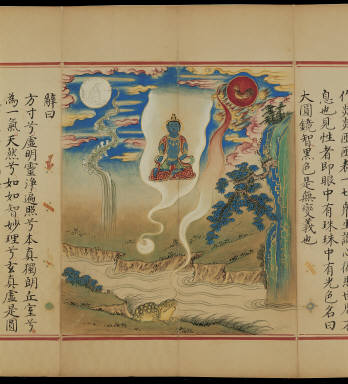 息也見性者即眼中有珠珠中有光色名曰
大圓鏡智黑色是無變義也
辭曰
方寸兮虛明靈淨遍照兮本真獨朗丘室兮
為一氣天然兮如如智妙理兮玄真虛是圓